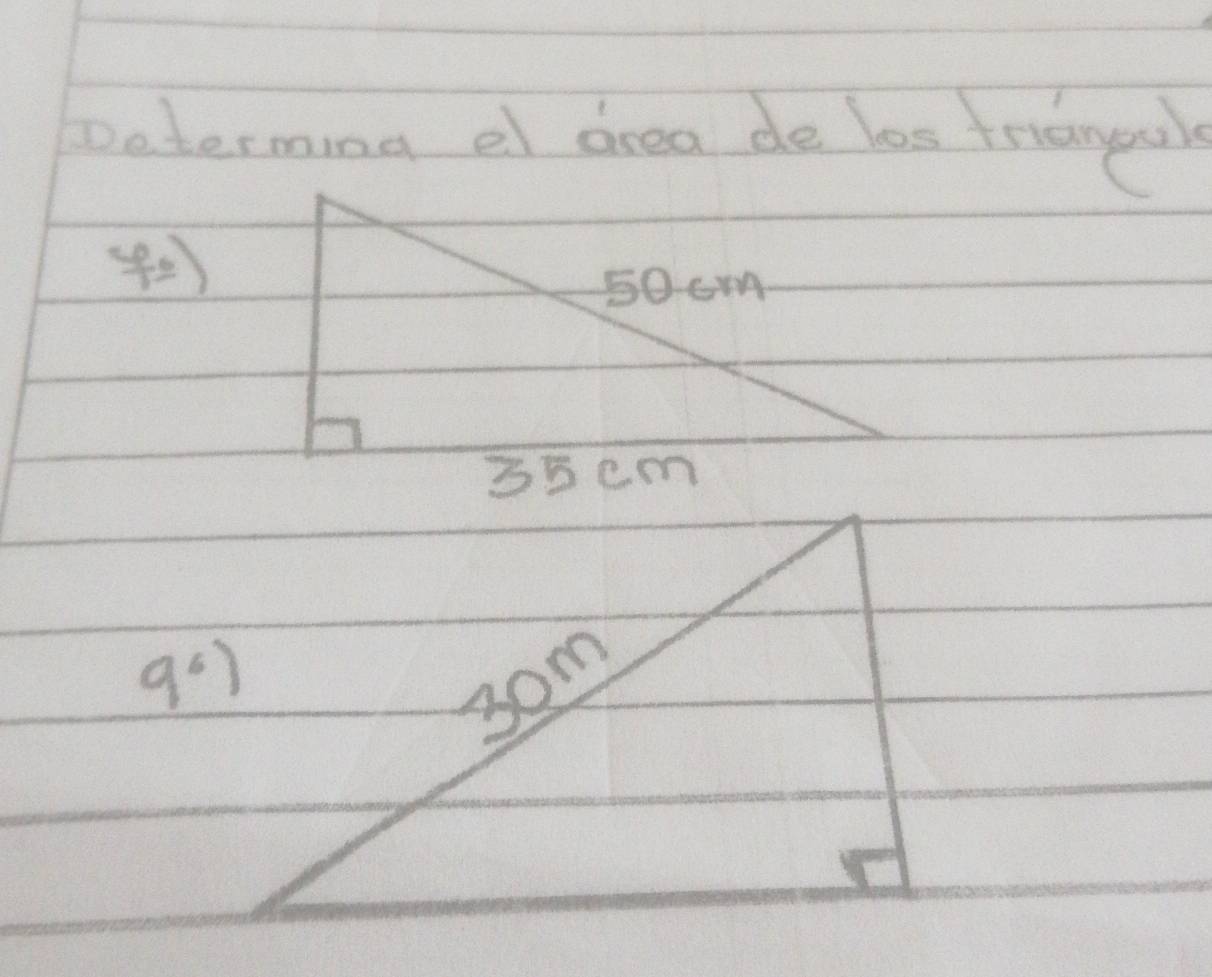 Determina el área de los triángulo
fº)
50 cm
35 cm
gº)
30 m